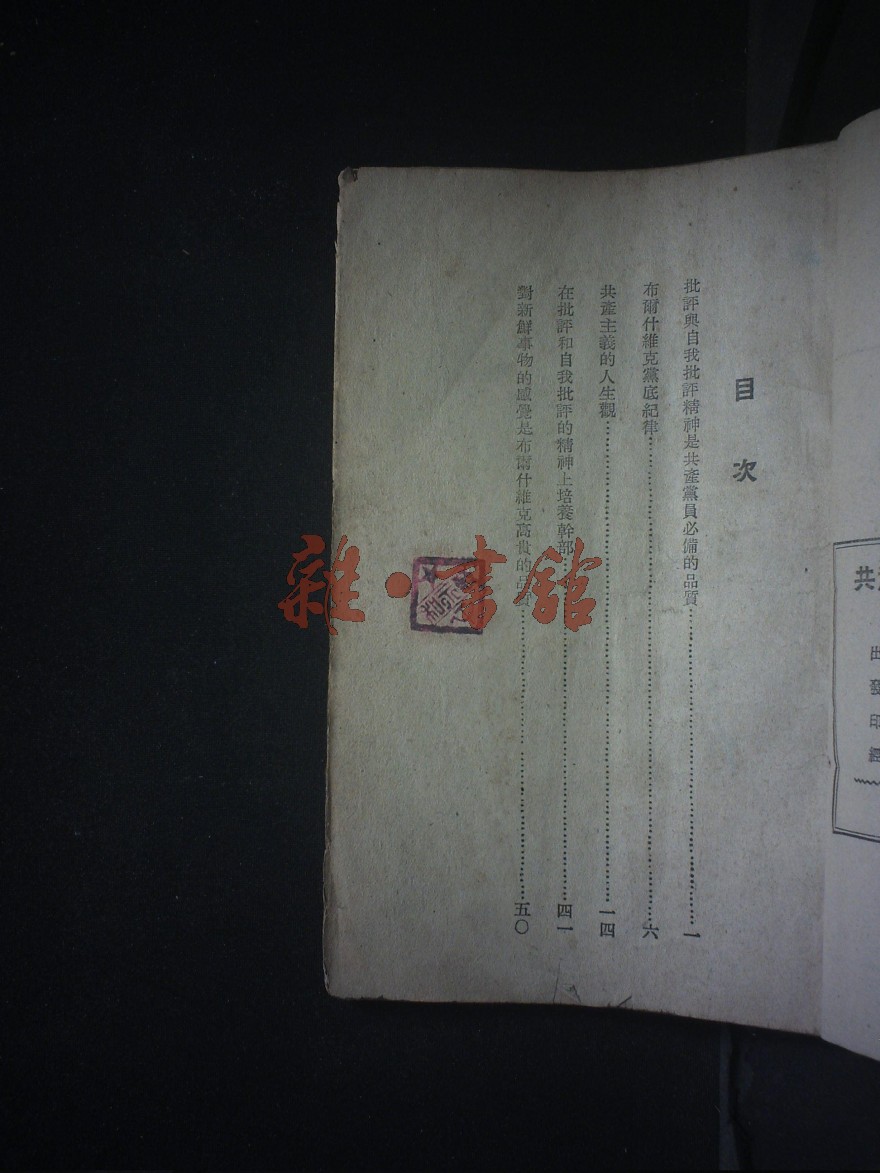 目次
批評與自我批評精神是共產黨員必備的品質……一
布爾什維克黨底紀律……六
共產主義的人生觀……一四
在批評和自我批評的精神上培養幹部……四一
對新鮮事物的感覺是布爾什維克高貴的品質……五〇
雜·書館
共
出
發
印